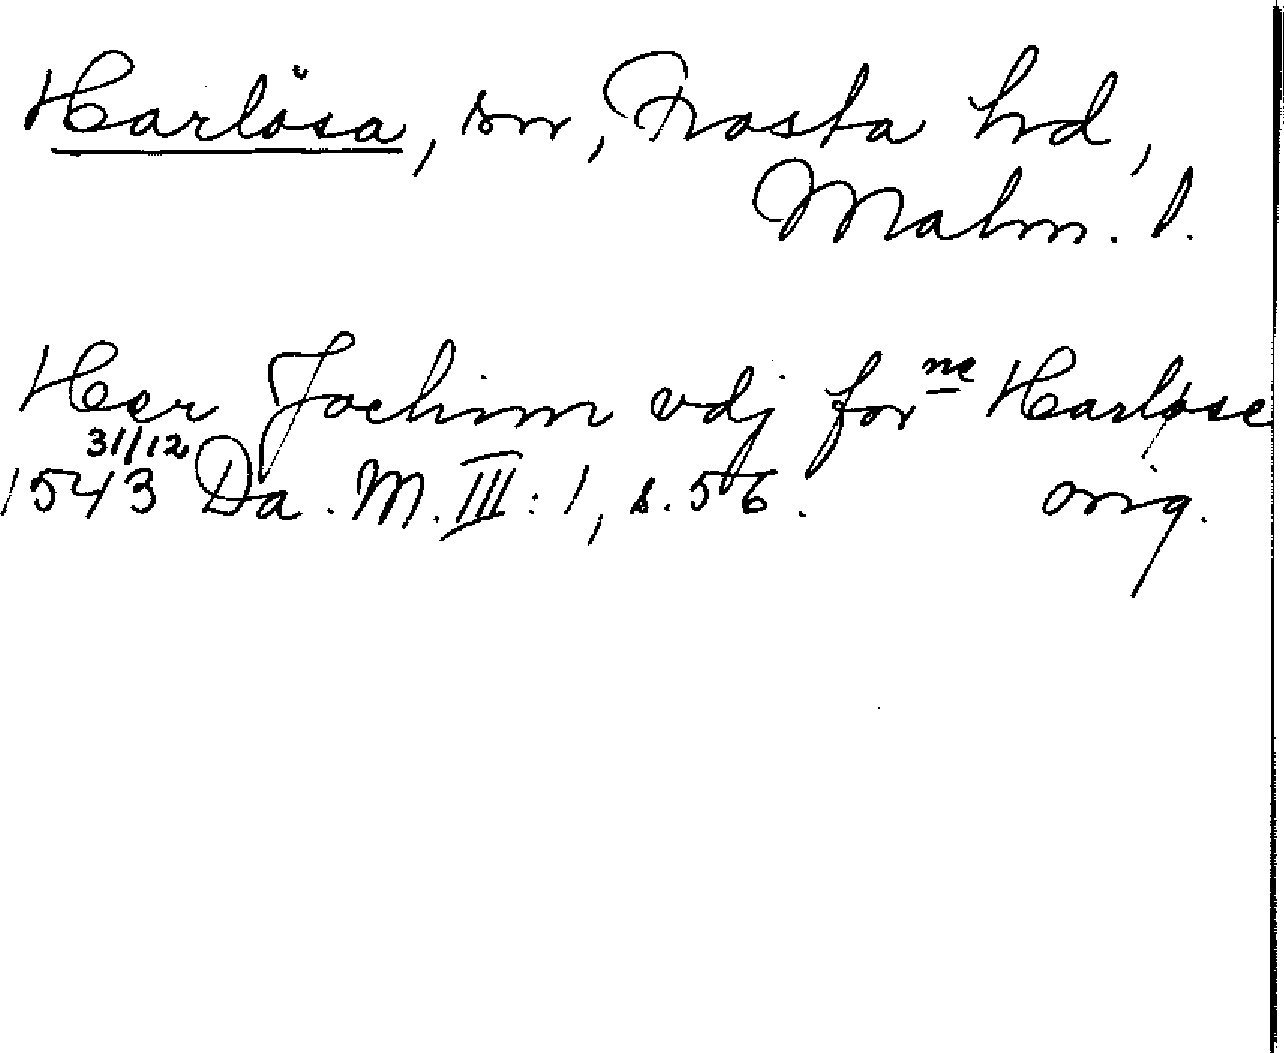 Harlösa, sn, Frosta hd,
Malm. l.
Her Jochim vdj for ne Harløse
31/12
1543 Da. M. III: 1, s. 56. orig.